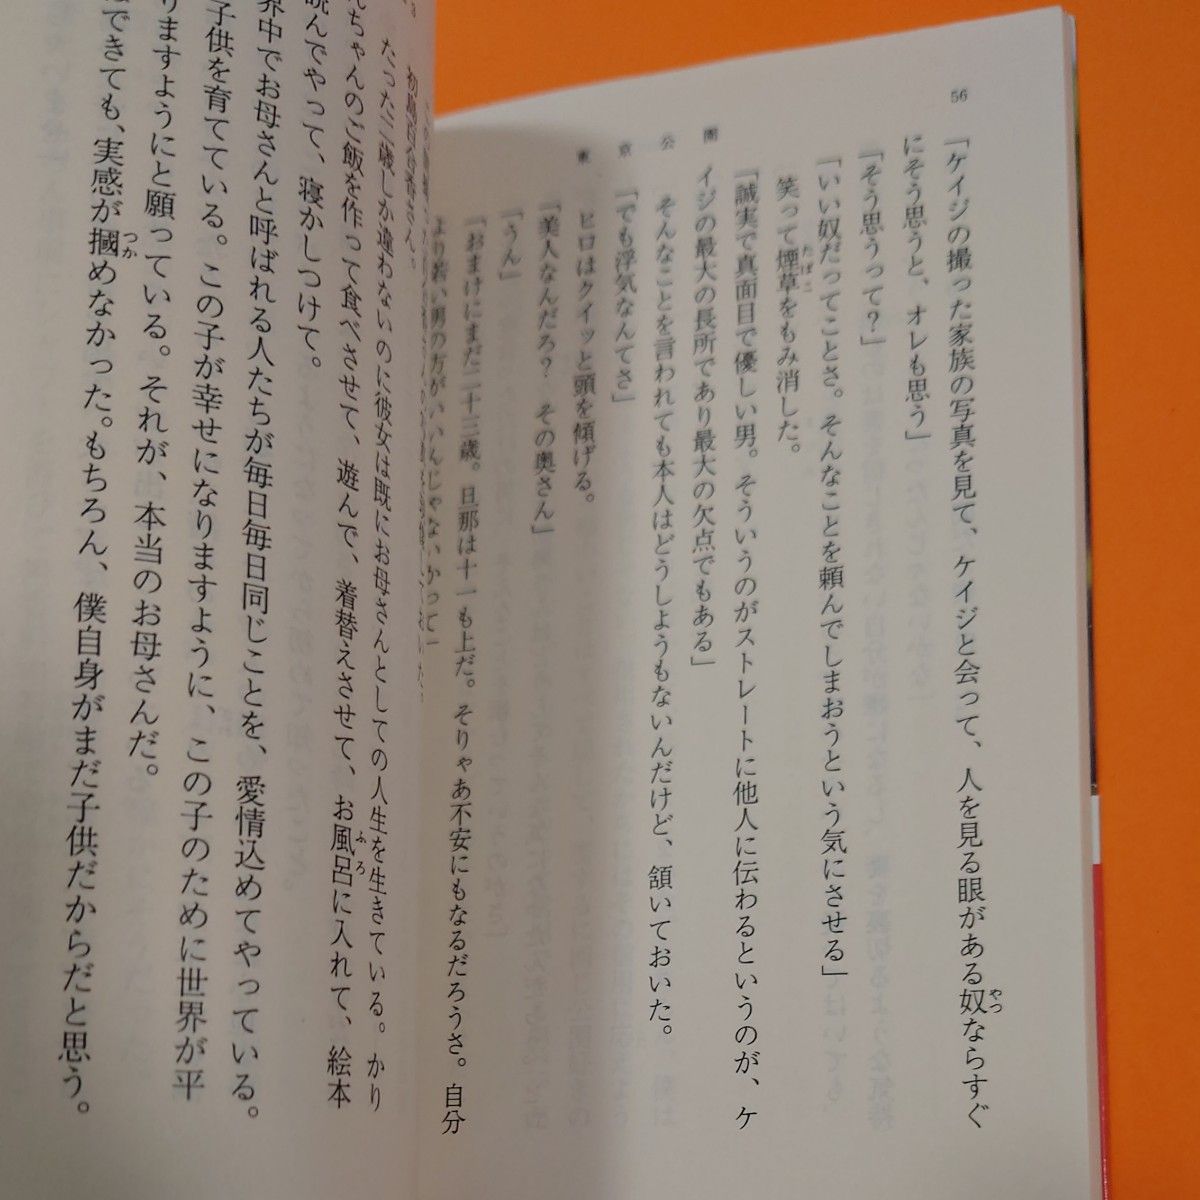 56
東京公園
「ケイジの撮った家族の写真を見て、ケイジと会って、人を見る眼がある奴ならすぐ
にそう思うと、オレも思う」
「そう思うって？」
「いい奴だってことさ。そんなことを頼んでしまおうという気にさせる」
笑って煙草をもみ消した。
「誠実で真面目で優しい男。そういうのがストレートに他人に伝わるというのが、ケ
イジの最大の長所であり最大の欠点でもある」
そんなことを言われても本人はどうしようもないんだけど、頷いておいた。
「でも浮気なんてさ」
ヒロはクイッと頭を傾げる。
「美人なんだろ？　その奥さん」
「うん」
「おまけにまだ二十三歳。旦那は十一も上だ。そりゃあ不安にもなるだろうさ。自分
より若い男の方がいいんじゃないかって」
初島百合香さん。
たった二歳しか違わないのに彼女は既にお母さんとしての人生を生きている。かり
んちゃんのご飯を作って食べさせて、遊んで、着替えさせて、お風呂に入れて、絵本
読んでやって、寝かしつけて。
界中でお母さんと呼ばれる人たちが毎日毎日同じことを、愛情込めてやっている。
子供を育てている。この子が幸せになりますように、この子のために世界が平
りますようにと願っている。それが、本当のお母さんだ。
できても、実感が摑めなかった。もちろん、僕自身がまだ子供だからだと思う。